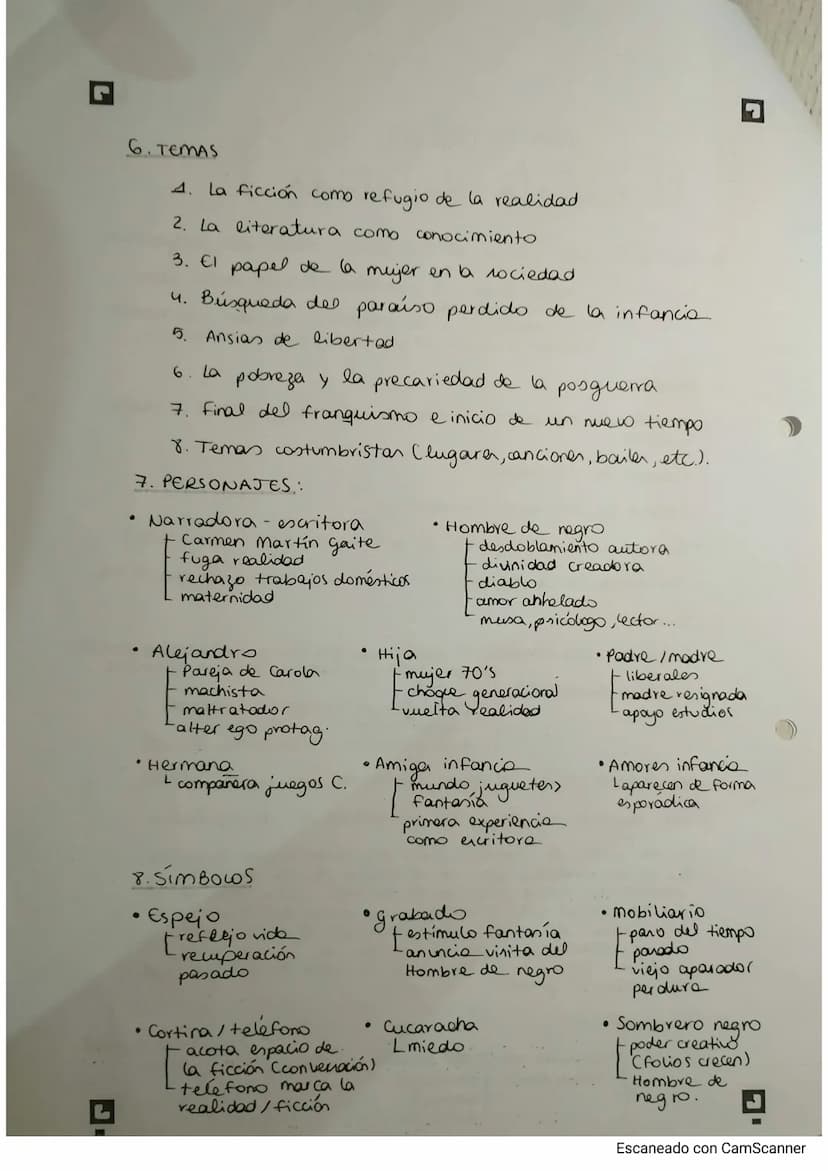 6. TEMAS
1. La ficción como refugio de la realidad
2. La literatura como conocimiento
3. El papel de la mujer en la sociedad
4. Búsqueda del paraíso perdido de la infancia
5. Ansias de libertad
6. La pobreza y la precariedad de la posguerra
7. Final del franquismo e inicio de un nuevo tiempo
8. Temas costumbristas (lugares, canciones, bailes, etc.).
7. PERSONAJES:
• Narradora - escritora
Carmen Martín Gaite
fuga realidad
rechazo trabajos domésticos
maternidad
• Hombre de negro
desdoblamiento autora
divinidad creadora
diablo
amor anhelado
musa, psicólogo, lector...
• Alejandro
Pareja de Carola
machista
maltratador
alter ego protag.
• Hija
mujer 70's
choque generacional
vuelta realidad
• Padre / madre
liberales
madre resignada
apoyo estudios
• Hermana
compañera juegos C.
• Amiga infancia
mundo juguetes>
fantasía
primera experiencia
como escritora
• Amores infancia
aparecen de forma
esporádica
8. SÍMBOLOS
• Espejo
reflejo vida
recuperación
pasado
• grabado
estímulo fantasía
anuncia visita del
Hombre de negro
• mobiliario
paso del tiempo
pasado
viejo aparador
perdura
• Cortina / teléfono
acota espacio de
la ficción (conversación)
teléfono marca la
realidad / ficción
• Cucaracha
miedo
• Sombrero negro
poder creativo
(folios crecen)
Hombre de
negro.
Escaneado con CamScanner